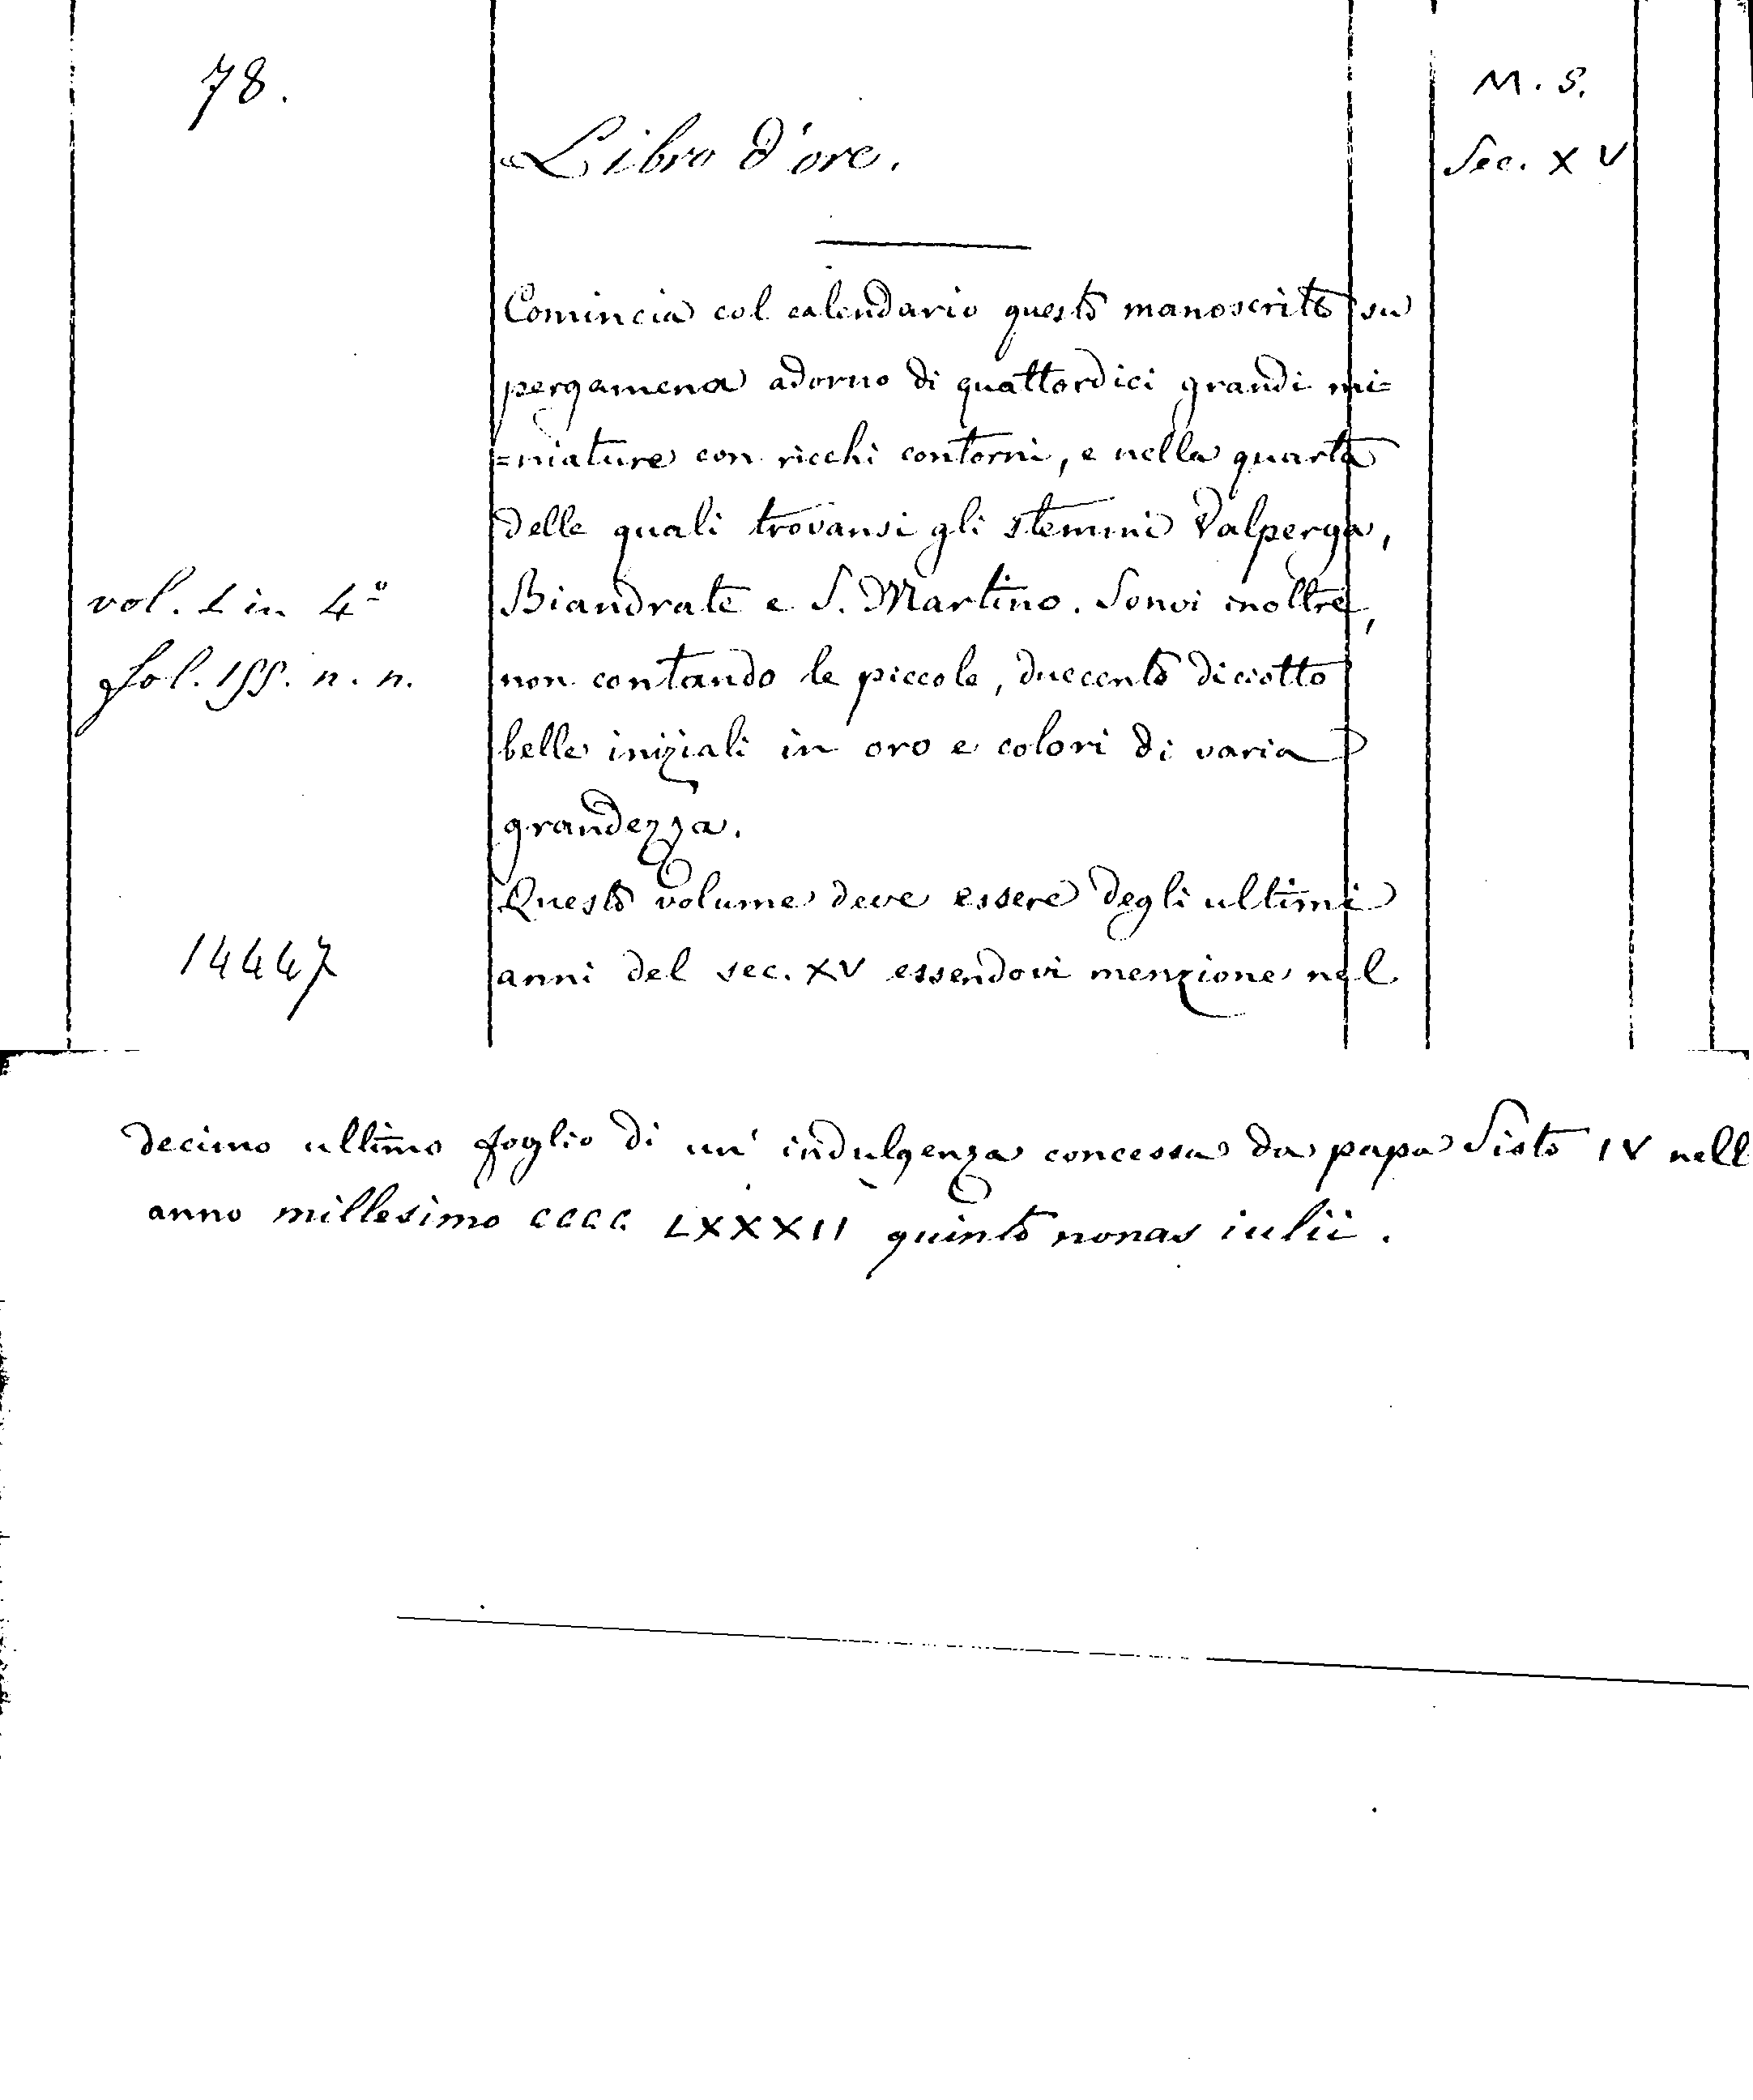 78.
M. S.
Libro d'ore.
Sec. XV
Comincia col calendario questo manoscritto su
pergamena adorno di quattordici grandi mi=
=niature con ricchi contorni, e nella quarta
delle quali trovansi gli stemmi Valperga,
Biandrate e S. Martino. Sonvi inoltre,
vol. 1 in 4º
non contando le piccole, duecento diciotto
fol. 155. n. n.
belle iniziali in oro e colori di varia
grandezza.
Questo volume deve essere degli ultimi
anni del sec. XV essendovi menzione nel
14447
decimo ultimo foglio di un' indulgenza concessa da papa Sisto IV nell
anno millesimo CCCC LXXXII quinto nonas iulii.